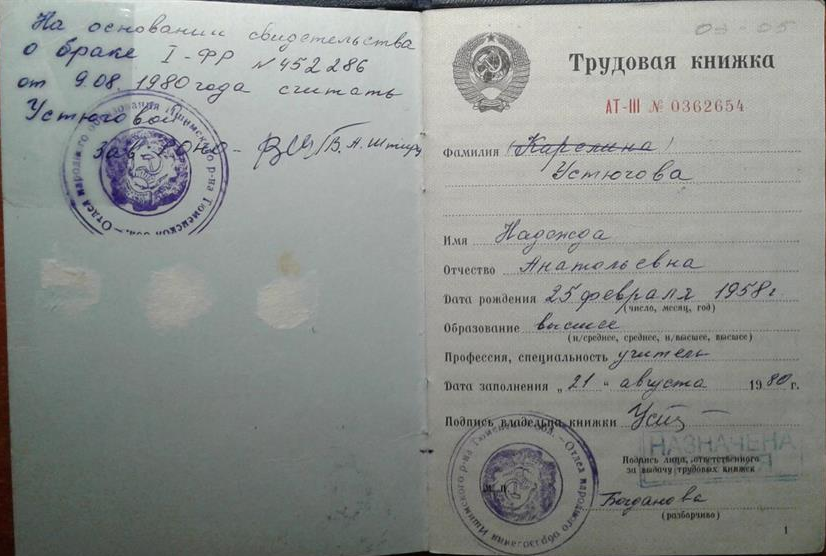 На основании свидетельства
о браке I-ФР № 452286
от 9.08.1980 года считать
Устюговой
Зав РОНО - В.А. Штиру
Отдел народного образования Ишимского р-на Тюменской обл.
04-05
Трудовая книжка
АТ-III № 0362654
Фамилия (Карелина)
Устюгова
Имя Надежда
Отчество Анатольевна
Дата рождения 25 февраля 1958 г
(число, месяц, год)
Образование высшее
(н/среднее, среднее, н/высшее, высшее)
Профессия, специальность учитель
Дата заполнения „21" августа 1980 г.
Подпись владельца книжки Уст
НАЗНАЧЕНА
Подпись лица, ответственного
за выдачу трудовых книжек
М. П.
Богданова
(разборчиво)
Отдел народного образования Ишимского р-на Тюменской обл.
1